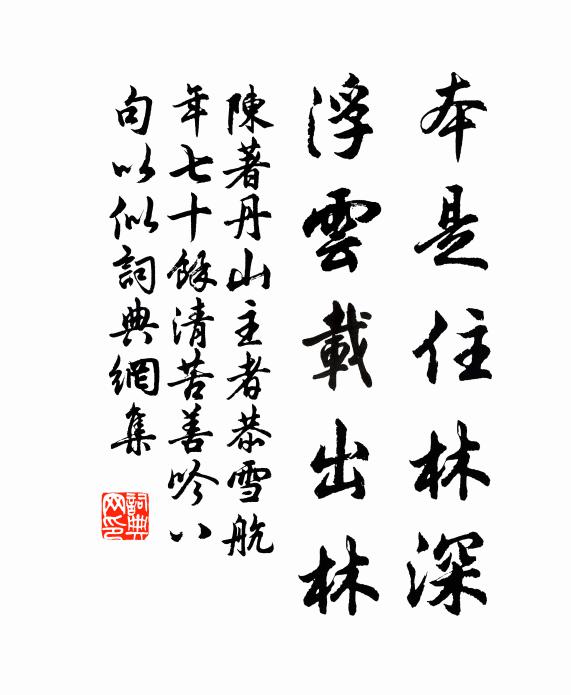 本是住林深
浮雲載出林
陳著丹山主者恭雪航
年七十餘清苦善吟八
句以似詞典網集
詞典網印